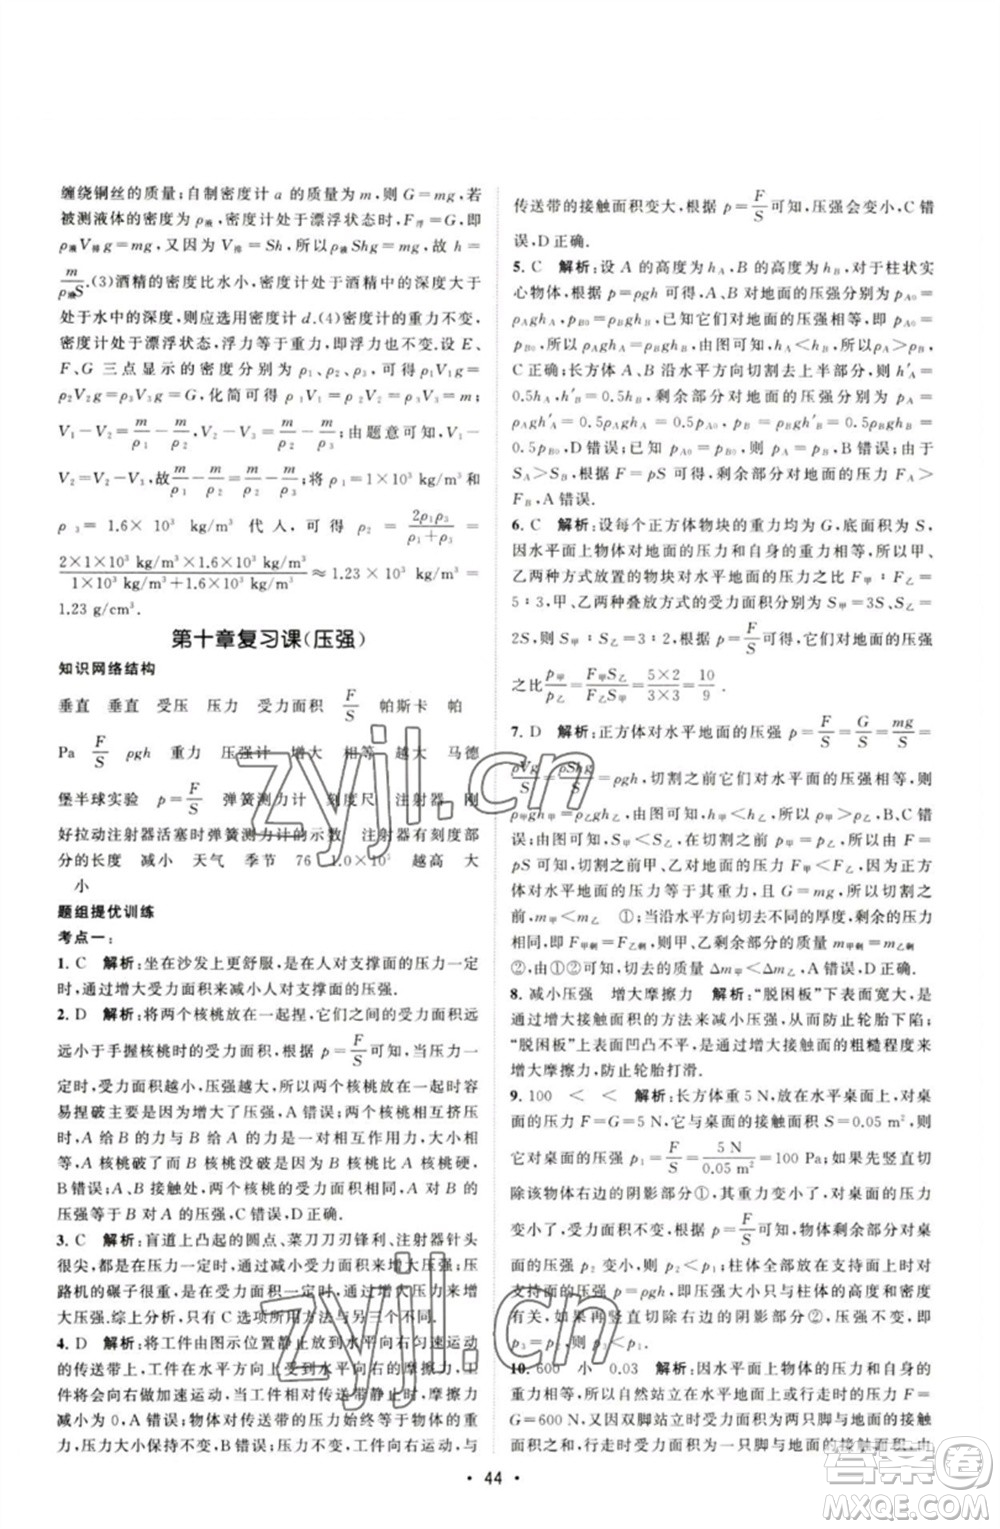 缠绕铜丝的质量;自制密度计 a 的质量为 m,则 G=mg,若
被测液体的密度为 ρ液,密度计处于漂浮状态时,F浮=G,即
ρ液V排g=mg,又因为 V排=Sh,所以 ρ液Shg=mg,故 h=
m/ρ液S.(3)酒精的密度比水小,密度计在酒精中的深度大于
处于水中的深度,则应选用密度计 d.(4)密度计的重力不变,
密度计处于漂浮状态,浮力等于重力,即不变.设 E、
F、G 三点显示的密度分别为 ρ1、ρ2、ρ3,则有 ρ1V1g=
ρ2V2g=ρ3V3g=G,化简可得 ρ1V1=ρ2V2=ρ3V3=m;
V1-V2=m/ρ1-m/ρ2,V2-V3=m/ρ2-m/ρ3;由题意可知,V1-
V2=V2-V3,则 m/ρ1-m/ρ2=m/ρ2-m/ρ3;将 ρ1=1×10³ kg/m³ 和
ρ3=1.6×10³ kg/m³ 代入,可得 ρ2=2ρ1ρ3/(ρ1+ρ3)=
2×1×10³ kg/m³×1.6×10³ kg/m³/(1×10³ kg/m³+1.6×10³ kg/m³)≈1.23×10³ kg/m³=
1.23 g/cm³.
第十章复习课(压强)
知识网络结构
垂直 垂直 受压 压力 受力面积 F/S 帕斯卡 帕
Pa F/S ρgh 重力 压强计 增大 相等 越大 马德
堡半球实验 p=F/S 弹簧测力计 刻度尺 注射器 刚
好拉动注射器活塞时弹簧测力计的示数 注射器有刻度部
分的长度 减小 天气 季节 76 1.0×10⁵ 越高 大
小
题组提优训练
考点一:
1. C 解析:坐在沙发上更舒服,是在人对支撑面的压力一定
时,通过增大受力面积来减小人对支撑面的压强.
2. D 解析:将两个核桃放在一起捏,它们之间的受力面积远
远小于手握核桃时的受力面积,根据 p=F/S 可知,当压力一
定时,受力面积越小,压强越大,将两个核桃放在一起更容
易捏破是增大了压强,A 错误;两个核桃相互挤压时,
A 给 B 的力与 B 给 A 的力是一对相互作用力,大小相
等,A 核桃破了而 B 核桃没破,说明 B 核桃比 A 核桃硬,
B 错误;A、B 接触处,两个核桃的受力面积相等,A 对 B 的
压强等于 B 对 A 的压强,C 错误,D 正确.
3. C 解析:盲道上凸起的圆点、菜刀刀刃锋利、注射器针头
很尖都是在压力一定时,减小受力面积,增大压强的;压
路机的碾子很重,是在受力面积一定时,通过增大压力来增
大压强.综上分析,只有 C 选项增大压强的方法与另三个不同.
4. D 解析:将工件由图示位置静止放到向右匀速运动的
传送带上,工件在水平方向上受到向右的摩擦力,工件向
右做加速运动,当工件相对传送带静止时,摩擦力
减小为 0,AB 错误;物体对传送带的压力始终等于物体的重
力,大小保持不变,压力不变.工件向右运动过程中,与
传送带的接触面积变大,根据 p=F/S 可知,压强会变小,C 错
误,D 正确.
5. C 解析:设 A 的高度为 hA,B 的高度为 hB,对于柱状实
心物体,根据 p=ρgh 可得,A、B 对地面的压强分别为 pA0=
ρAghA、pB0=ρBghB,已知它们对地面的压强相等,即 pA0=
pB0,所以 ρAghA=ρBghB,由图可知 hA>hB,则 ρA<ρB,
C 正确;长方体 A、B 各沿水平方向切去上半部分,则 h′A=
0.5hA,h′B=0.5hB,剩余部分对地面的压强分别为 pA=
ρAgh′A=0.5ρAghA=0.5pA0,pB=ρBgh′B=0.5ρBghB=
0.5pB0,D 错误;已知 pA0=pB0,则 pA=pB,B 错误;由图可知
SA>SB,根据 F=pS 可得,剩余部分对地面的压力 FA>
FB,A 错误.
6. C 解析:设每个正方体物块的重力均为 G,底面积为 S,
因水平面上物体对地面的压力和自身的重力相等,所以甲、
乙两种方式叠放的物块对水平地面的压力之比 F甲∶F乙=
5∶3,甲、乙两种叠放方式的受力面积分别为 S甲=3S、S乙=
2S,则甲、乙两种叠放方式下,它们对地面的压强
之比 p甲/p乙=F甲S乙/F乙S甲=5×2/3×3=10/9.
7. D 解析:正方体对水平地面的压强 p=F/S=G/S=mg/S=
ρVg/S=ρShg/S=ρgh,切割之前它们对水平面的压强相等,即
ρ甲gh甲=ρ乙gh乙,由图可知 h甲>h乙,则 ρ甲<ρ乙,B、C 错误;由
F=pS 可知,切割之前甲、乙对水平面的压力 F甲>F乙,正方
体对水平地面的压力等于其重力,则 F=G=mg,切割之
前,质量 m甲>m乙 ①;当沿水平方向切去不同的厚度,剩余的
正方体对地面的压力相等,即 F甲剩=F乙剩,则甲、乙剩余质量 m甲剩=m乙剩
②,由①②可知,切去的质量关系 Δm甲>Δm乙,A 错误,D 正确.
8. 减小压强 增大摩擦力 解析:“脱困板”下表面宽大,是
通过增大接触面积的方法来减小压强,防止轮胎下陷;
“脱困板”的表面凹凸不平,是通过增大接触面的粗糙程度来
增大摩擦力,防止轮胎打滑.
9. 100 < < 解析:长方体重 5 N,放在水平桌面上,对桌
面的压力 F=G=5 N,它与桌面的接触面积 S=0.05 m²,则
它对桌面的压强 p1=F/S=5 N/0.05 m²=100 Pa;若先竖直切
除该物体右边的阴影部分①,剩余部分对水平桌面的压力
变小了,受力面积不变,根据 p=F/S 可知,物体剩余部分对桌
面的压强 p2<p1;柱体上下粗细均匀且放在水平支持面上时,对
支持面的压强 p=ρgh,即压强只与柱体的高度和密度
有关,如果再竖直切除右边的阴影部分②,压强不变,即
p3=p2<p1.
10. 600 小 0.03 解析:因水平面上物体的压力和自身的
重力相等,所以自然站立在水平地面上时对地面的压力 F=
G=600 N,又因双脚站立时与地面的接触面积大于行走时的接触面
积,且行走时只有一只脚与地面的接触面积,由
• 44 •
zyjl.cn
zyjl.cn
答案圈
MXQE.COM